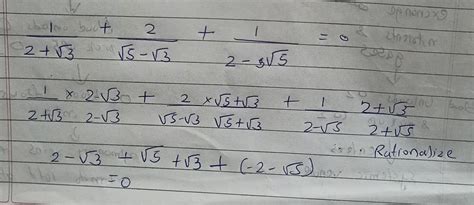 1/(2+√3) + 2/(√5-√3) + 1/(2-3√5) = 0
1/(2+√3) × (2-√3)/(2-√3) + 2/(√5-√3) × (√5+√3)/(√5+√3) + 1/(2-√5) (2+√5)/(2+√5)
Rationalize
2-√3 + √5+√3 + (-2-√5)
=0